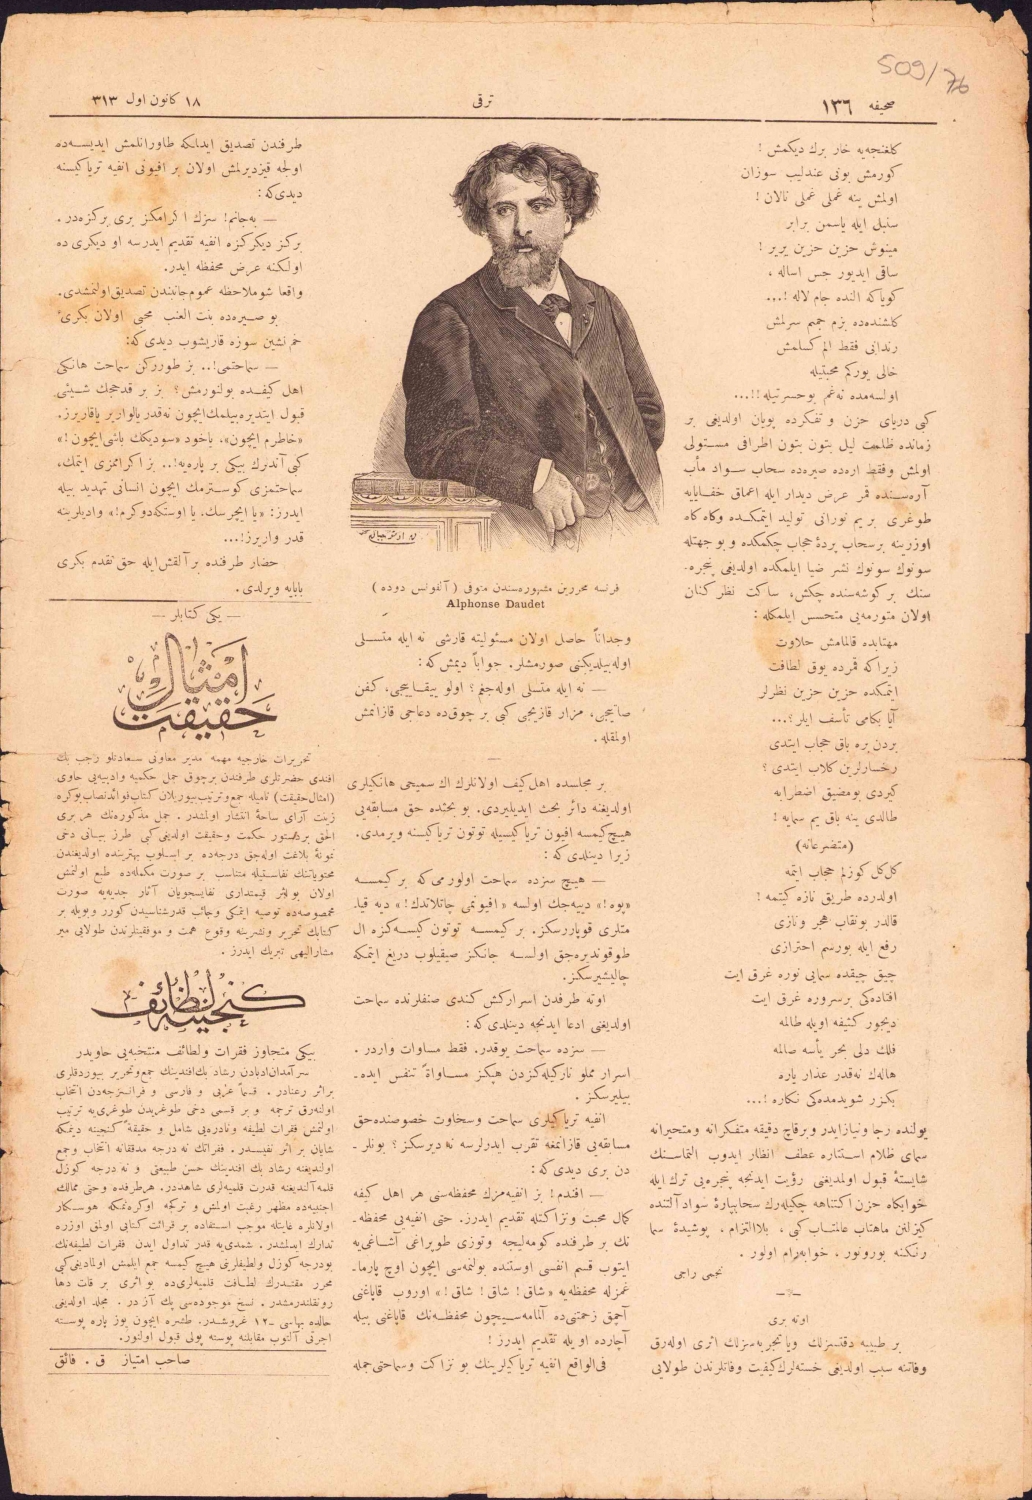 509/76
صحیفه ١٣٦
ترقی
١٨ كانون اول ٣١٣
كلغنجه‌یه خار برك دیكمش !
كورمش بونی عندلیب سوزان
اولمش ینه غملی غملی نالان !
سنبل ایله یاسمن برابر
مینوش حزین حزین بریر !
ساقی ایدیور جس اساله ،
كویاكه النده جام لاله !...
كلشنده‌ده بزم جمم سرلمش
رندانی فقط الم كسلمش
خالی یورکم محبتیله
اولسه‌مده نه‌غم بو حسرتیله !!...
كبی دریای حزن و تفكرده پویان اولدیغی بر
زمانده ظلمت لیل بتون بتون اطرافی مستولی
اولمش وفقط اره‌ده صیره‌ده سحاب سواد مأب
آره‌سنده قمر عرض دیدار ایله اعماق خفایایه
طوغری بر یم نورانی تولید ایتمكده وكاه كاه
اوزرینه برسحاب پردهٔ حجاب چكمكده و بو جهتله
سونوك سونوك نشر ضیا ایلمكده اولدیغی پنجره‌
سنك بر كوشه‌سنده چكش، ساكت نظر كنان
اولان متورمه‌یی متحسس ایلمكله :
مهتابده قالمامش حلاوت
زیرا كه قمرده یوق لطافت
ایتمكده حزین حزین نظرلر
آیا بكامی تأسف ایلر؟...
بردن بره باق حجاب ایتدی
رخسارلرین كلاب ایتدی ؟
كیردی بومضیق اضطرابه
طالدی ینه باق یم سمایه !
(متضرعانه)
كل كل كوزلم حجاب ایتمه
اولدرده طریق نازه كیتمه !
قالدر بونقاب هجر ونازی
رفع ایله بورسم احترازی
چیق چیقده سمایی نوره غرق ایت
افتاده‌كی برسروره غرق ایت
دیجور كثیفه اویله طالمه
فلك دلی بحر یأسه صالمه
هاله‌ك نه‌قدر عذار یاره
بكزر شویدمده‌كی نكاره !...
یولنده رجا ونیازایدر وبرقاچ دقیقه متفكرانه ومتحیرانه
سمای ظلام استتاره عطف انظار ایدوب التماسنك
شایستهٔ قبول اولمدیغنی رؤیت ایدنجه پنجره‌یی ترك ایله
خوابكاه حزن اكتناهه چكیله‌رك سحابپارهٔ سواد آلتنده
كیزلنن ماهتاب عالمتاب كبی ، بلاالتزام ، پوشیدهٔ سما
رنكنه بورونور ، خوابه‌رام اولور .
نجمی راجی
اوته بری
بر طبیبه دقتسزلك ویا تجربه‌سزلك اثری اوله‌رق
وفاتنه سبب اولدیغی خسته‌لرك كیفیت وفاتلرندن طولایی
فرنسه محررین مشهوره‌سندن متوفی ( آلفونس دوده )
Alphonse Daudet
وجداناً حاصل اولان مسئولیته قارشی نه ایله متسلی
اوله‌بیلدیكنی صورمشلر. جواباً دیمش كه :
— نه ایله متسلی اوله‌جغم؟ اولو ییقاییجی، كفن
صاتیجی، مزار قازیجی كبی بر چوق ده دعاجی قازانمش
اولمقله .
—
بر مجلسده اهل كیف اولانلرك اك سمیحی هانكیلری
اولدیغنه دائر بحث ایدیلیردی. بو بحثده حق مسابقه‌یی
هیچ كیمسه افیون تریاكیسیله توتون تریاكیسنه ویرمدی.
زیرا دینلدی كه :
— هیچ سزده سماحت اولورمی كه بر كیمسه
«پوه!» دییه‌جك اولسه «افیونمی چاتلاتدك!» دیه قیا-
متلری قوپاررسكز. بر كیمسه توتون كیسه‌كزه ال
طوقوندیره‌جق اولسه جانكز صیقیلوب دریغ ایتمكه
چالیشیرسكز.
اوته طرفدن اسراركش كندی صنفلرنده سماحت
اولدیغنی ادعا ایدنجه دینلدی كه :
— سزده سماحت یوقدر. فقط مساوات واردر .
اسرار مملو ناركیله‌كزدن هپكز مساواةً تنفس ایده‌-
بیلیرسكز .
انفیه تریاكیلری سماحت وسخاوت خصوصنده حق
مسابقه‌یی قازانمغه تقرب ایدرلرسه نه دیرسكز؟ بونلر-
دن بری دیدی كه :
— افندم! بز انفیه‌مزك محفظه‌سنی هر اهل كیفه
كمال محبت ونزاكتله تقدیم ایدرز. حتی انفیه‌یی محفظه-
نك بر طرفنده كومه‌لیجه وتوزی طوپراغی آشاغی‌یه
ایتوب قسم انفسی اوستنده بولنمه‌سی ایچون اوچ پارما-
غمزله محفظه‌یه «شاق! شاق! شاق!» اوروب قاپاغنی
آچمق زحمتنی‌ده آلمامه‌سیچون محفظه‌نك قاپاغنی بیله
آچارده اویله تقدیم ایدرز !
فی‌الواقع انفیه تریاكیلرینك بو نزاكت وسماحتی جمله
طرفندن تصدیق ایدلمكه طاورانلمش ایدیسه‌ده
اولجه قیزدیرلمش اولان بر افیونی انفیه تریاكیسنه
دیدی كه :
— به‌جانم! سزك اكرامكز بری بركزه‌در .
بركز دیكركزه انفیه تقدیم ایدرسه او دیكری ده
اولكنه عرض محفظه ایدر.
واقعا شوملاحظه عموم جانبندن تصدیق اولنمشدی.
بو صیره‌ده بنت العنب محبی اولان بكری
خم نشین سوزه قاریشوب دیدی كه:
— سماحتمی!.. بز طوررکن سماحت هانكی
اهل كیفده بولنورمش؟ بز بر قدحجك شیئی
قبول ایتدیره‌بیلمك ایچون نه‌قدر یالواریر یاقاریرز.
«خاطرم ایچون»، یاخود «سودیكك باشی ایچون!»
كبی آندلرك بیكی بر پاره‌یه!.. بز اكراممزی ایتمك،
سماحتمزی كوسترمك ایچون انسانی تهدید بیله
ایدرز: «یا ایچرسك، یا اوستكه دوكرم!» وادیلرینه
قدر واریرز!...
حضار طرفنده بر آلقش ایله حق تقدم بكری
بابایه ویرلدی.
— یكی كتابلر —
امثال حقیقت
تحریرات خارجیه مهمه مدیر معاونی سعادتلو رجب بك
افندی حضرتلری طرفندن برچوق جمل حكمیه وادبیه‌یی حاوی
(امثال حقیقت) نامیله جمع وترتیب بیوریلان كتاب فوائدنصاب بوكره
زینت آرای ساحهٔ انتشار اولمشدر. جمل مذكوره‌نك هر بری
الحق بردستور حكمت وحقیقت اولدیغی كبی طرز بیانی دخی
نمونهٔ بلاغت اوله‌جق درجه‌ده بر اسلوب بهتربنده اولدیغندن
محتویاتنك نفاستیله متناسب بر صورت مكمله‌ده طبع اولنمش
اولان بواثر قیمتداری نفایسجویان آثار جدیه‌یه صورت
مخصوصه‌ده توصیه ایتمكی وجائب قدرشناسیدن كورر وبویله بر
كتابك تحریر ونشرینه وقوع همت و موفقیتلرندن طولایی میر
مشارالیهی تبریك ایدرز .
كنجینه لطائف
بیكی متجاوز فقرات ولطائف منتخبه‌یی حاویدر
سرآمدان ادبادن رشاد بك افندینك جمع وتحریر بیوردقلری
براثر رعنادر . قسماً عربی و فارسی و فرانسزجه‌دن انتخاب
اولنه‌رق ترجمه و بر قسمی دخی طوغریدن طوغری‌یه ترتیب
اولنمش فقرات لطیفه ونادره‌یی شامل و حقیقةً كنجینه دینمكه
شایان بر اثر نفیسدر. فقراتك نه درجه مدققانه انتخاب وجمع
اولندیغنه رشاد بك افندینك حسن طبیعتی و نه درجه كوزل
قلمه آلندیغنه قدرت قلمیه‌لری شاهددر. هرطرفده وحتی ممالك
اجنبیه‌ده مظهر رغبت اولمش و تركجه اوكره‌نمكه هوسكار
اولانلره غایتله موجب استفاده بر قرائت كتابی اولمق اوزره
تدارك ایدلمشدر. شمدی‌یه قدر تداول ایدن فقرات لطیفه‌نك
بودرجه كوزل ولطیفلرینی هیچ كیمسه جمع ایلمش اولمادیغی كبی
محرر مقتدرك لطافت قلمیه‌لری‌ده بو اثری بر قات دها
رونقلندرمشدر. نسخ موجوده‌سی پك آزدر. مجلد اولدیغی
حالده بهاسی ١٢ غروشدر. طشره ایچون یوز پاره پوسته
اجرتی آلنوب مقابلنه پوسته پولی قبول اولنور.
صاحب امتیاز ق . فائق